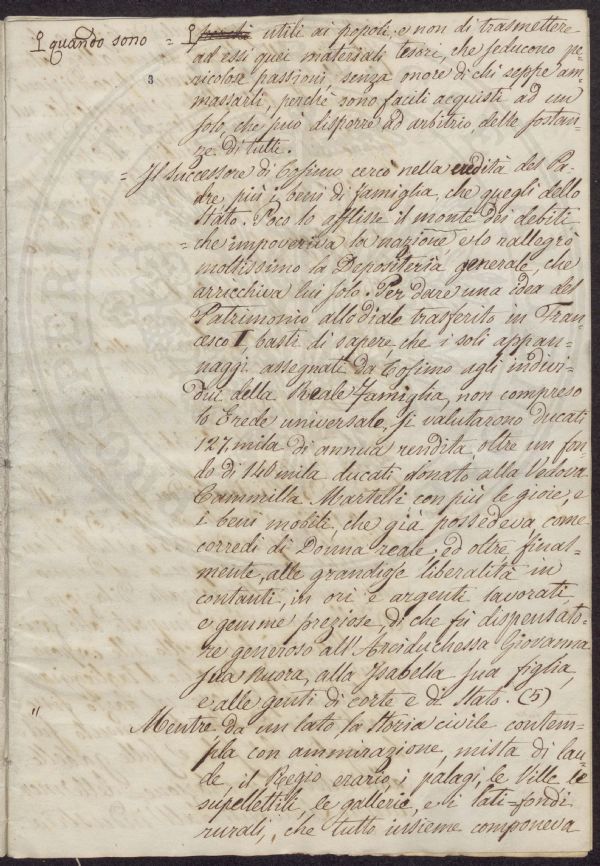 quando sono = perchè utili ai popoli, e non di trasmettere
ad essi quei materiali tesori, che seducono pe-
3
ricolose passioni senza onore di chi seppe am-
massarli, perchè sono facili acquisti ad un
solo, che può disporre ad arbitrio delle sostan-
ze di tutti.
= Il successore di Cosimo cercò nella eredità del Pa-
dre più i beni di famiglia, che quegli dello
Stato. Poco lo afflisse il monte dei debiti
= che impoveriva la nazione, e lo rallegrò
moltissimo la Depositeria generale, che
arricchiva lui solo. Per dare una idea del
Patrimonio allodiale trasferito in Fran-
cesco I basti di sapere, che i soli appan-
naggi assegnati da Cosimo agli indivi-
dui della Reale famiglia, non compreso
lo Erede universale, si valutarono Ducati
127. mila di annua rendita, oltre un fon-
do di 140 mila ducati donato alla Vedova
Cammilla Martelli con più le gioie, e
i beni mobili, che già possedeva come
corredi di Donna reale, ed oltre, final-
mente, alle grandiose liberalità in
contanti, in ori e argenti lavorati,
e gemme preziose, di che fu dispensato-
re generoso all'Arciduchessa Giovanna
sua Nuora, alla Isabella sua figlia,
e alle genti di corte e di Stato. (5)
" Mentre da un lato la Storia civile contem-
pla con ammirazione, mista di lau-
de, il Regio erario, i palagi, le Ville le
supellettili, le gallerie, e i lati=fondi
rurali, che tutto insieme componeva